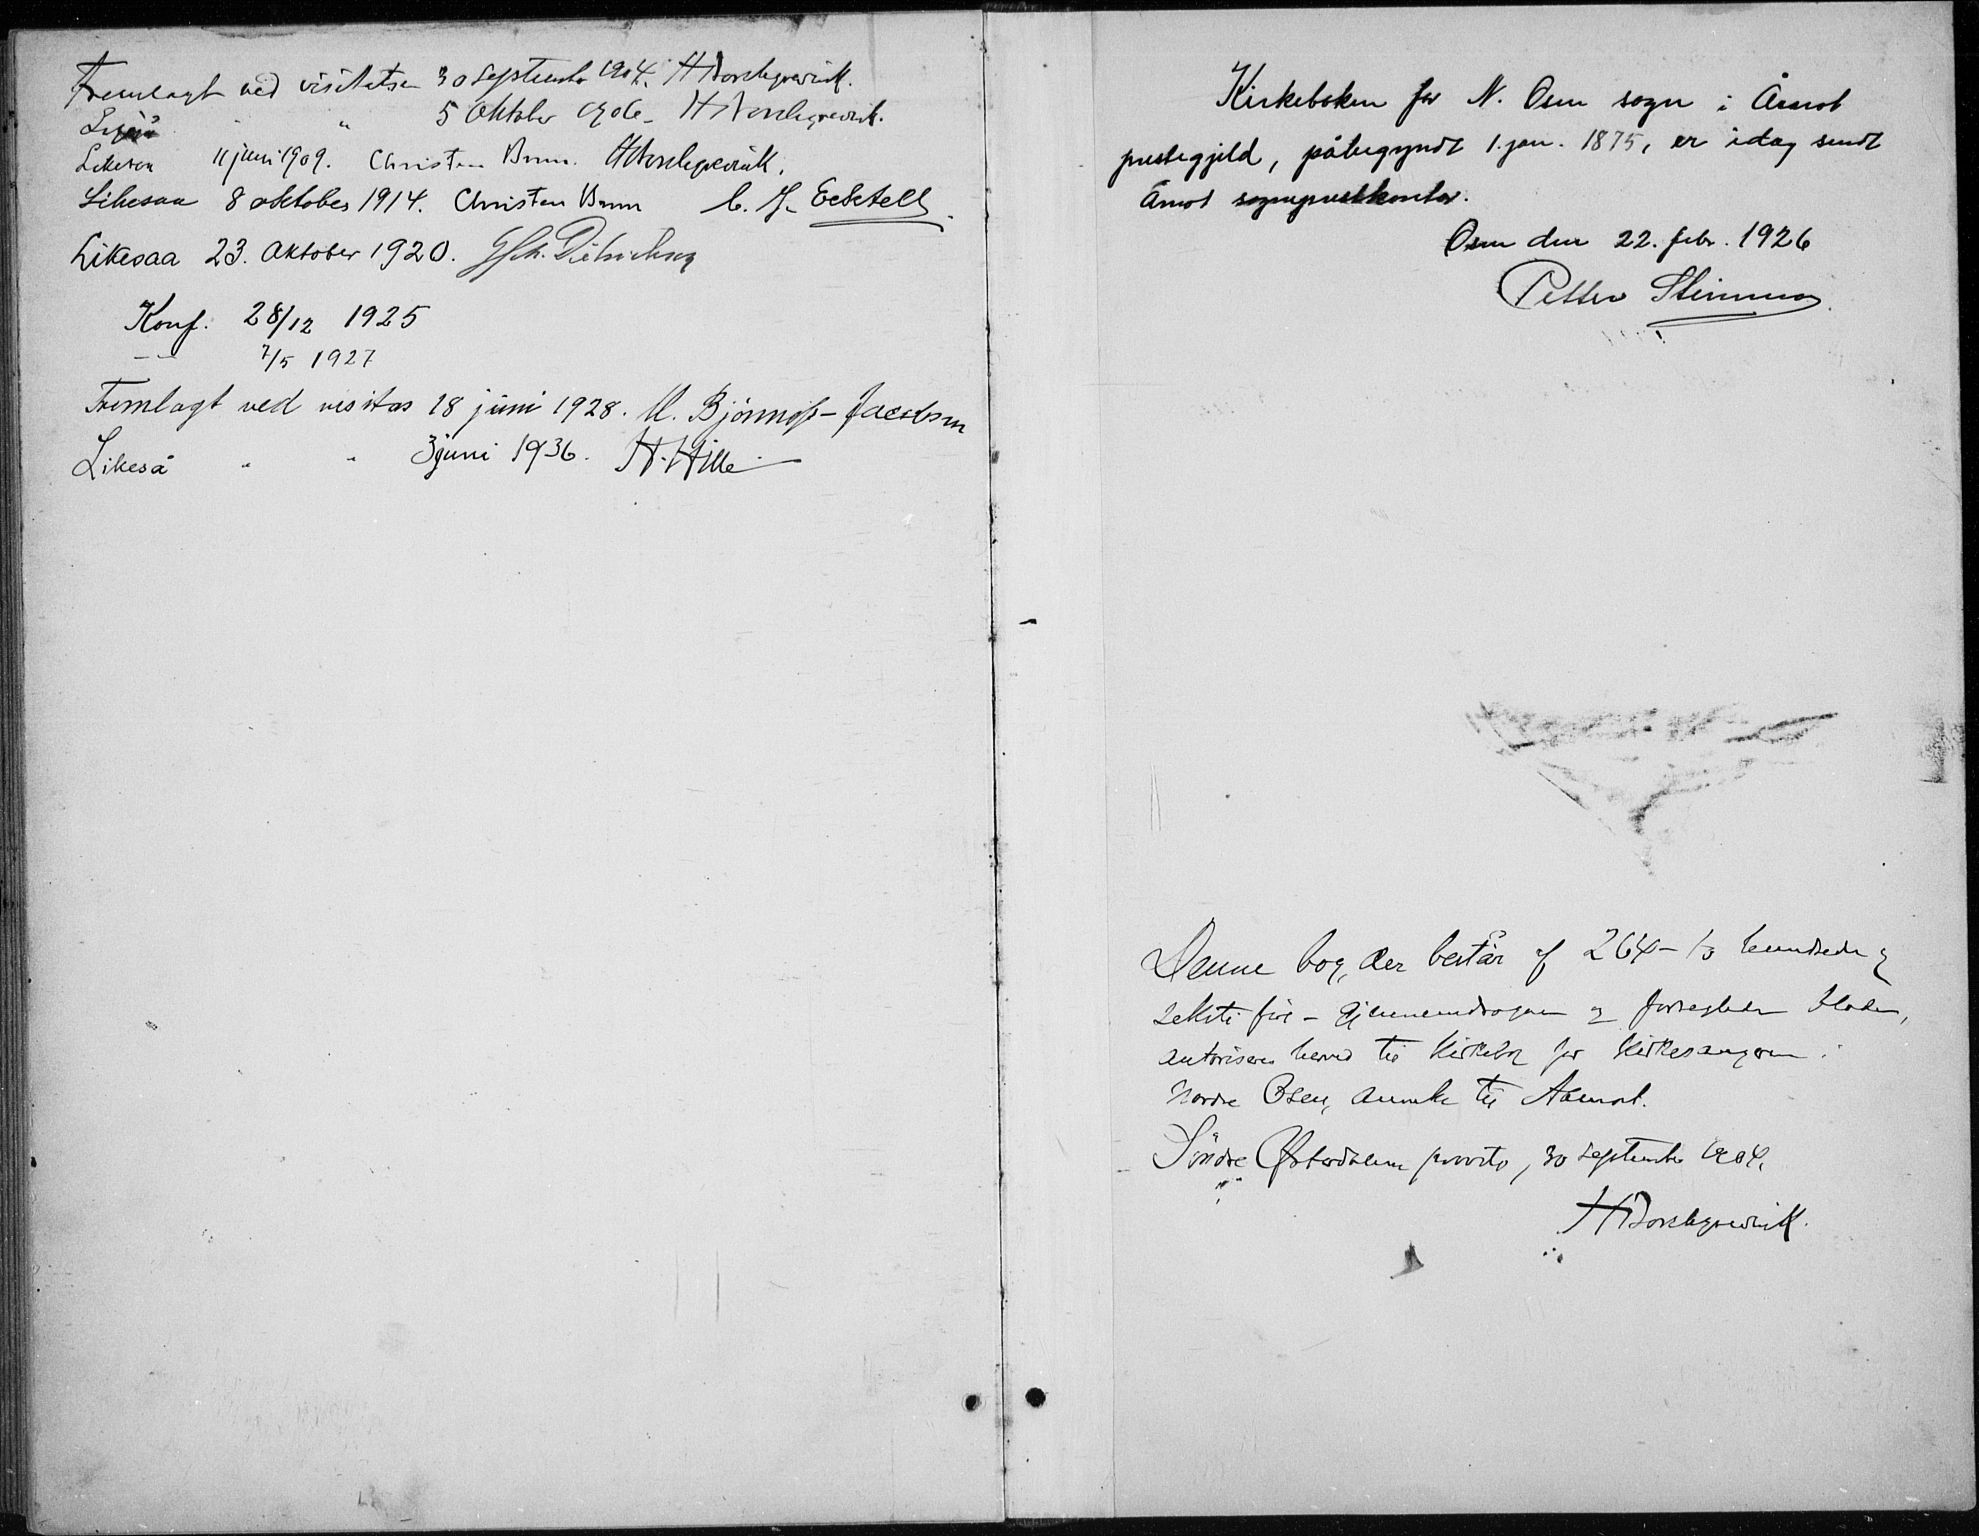 Fremlagt ved visitatsen 30 september 1904. H Borchgrevink.
" " 5 Oktober 1906 - H Borchgrevink.
Likesaa 11 juni 1909. Christen Brun. H Borchgrevink.
Likesaa 8 oktober 1914. Christen Brun C. J.
Likesaa 23. Oktober 1920. Dietrichson
Konf. 28/12 1925
— " — 7/5 1927
Fremlagt ved visitas 18 juni 1928. M. Bjønness-Jacobsen
Likeså " " 3 juni 1936. H. Hille
Kirkeboken for N. Osen sogn i Åmot
prestegjeld, påbegyndt 1. jan. 1875, er idag sendt
Åmot sogneprestkontor.
Osen den 22. febr. 1926
Petter
Denne bog, der består af 264 - to hundrede og
seksti fire - gjennemdragne og forseglede blade,
autoriseres herved til Kirkebog for Kirkesangeren i
Nordre Osen, anneks til Aamot.
Søndre Østerdalens provsti, 30 september 1904.
H Borchgrevink.